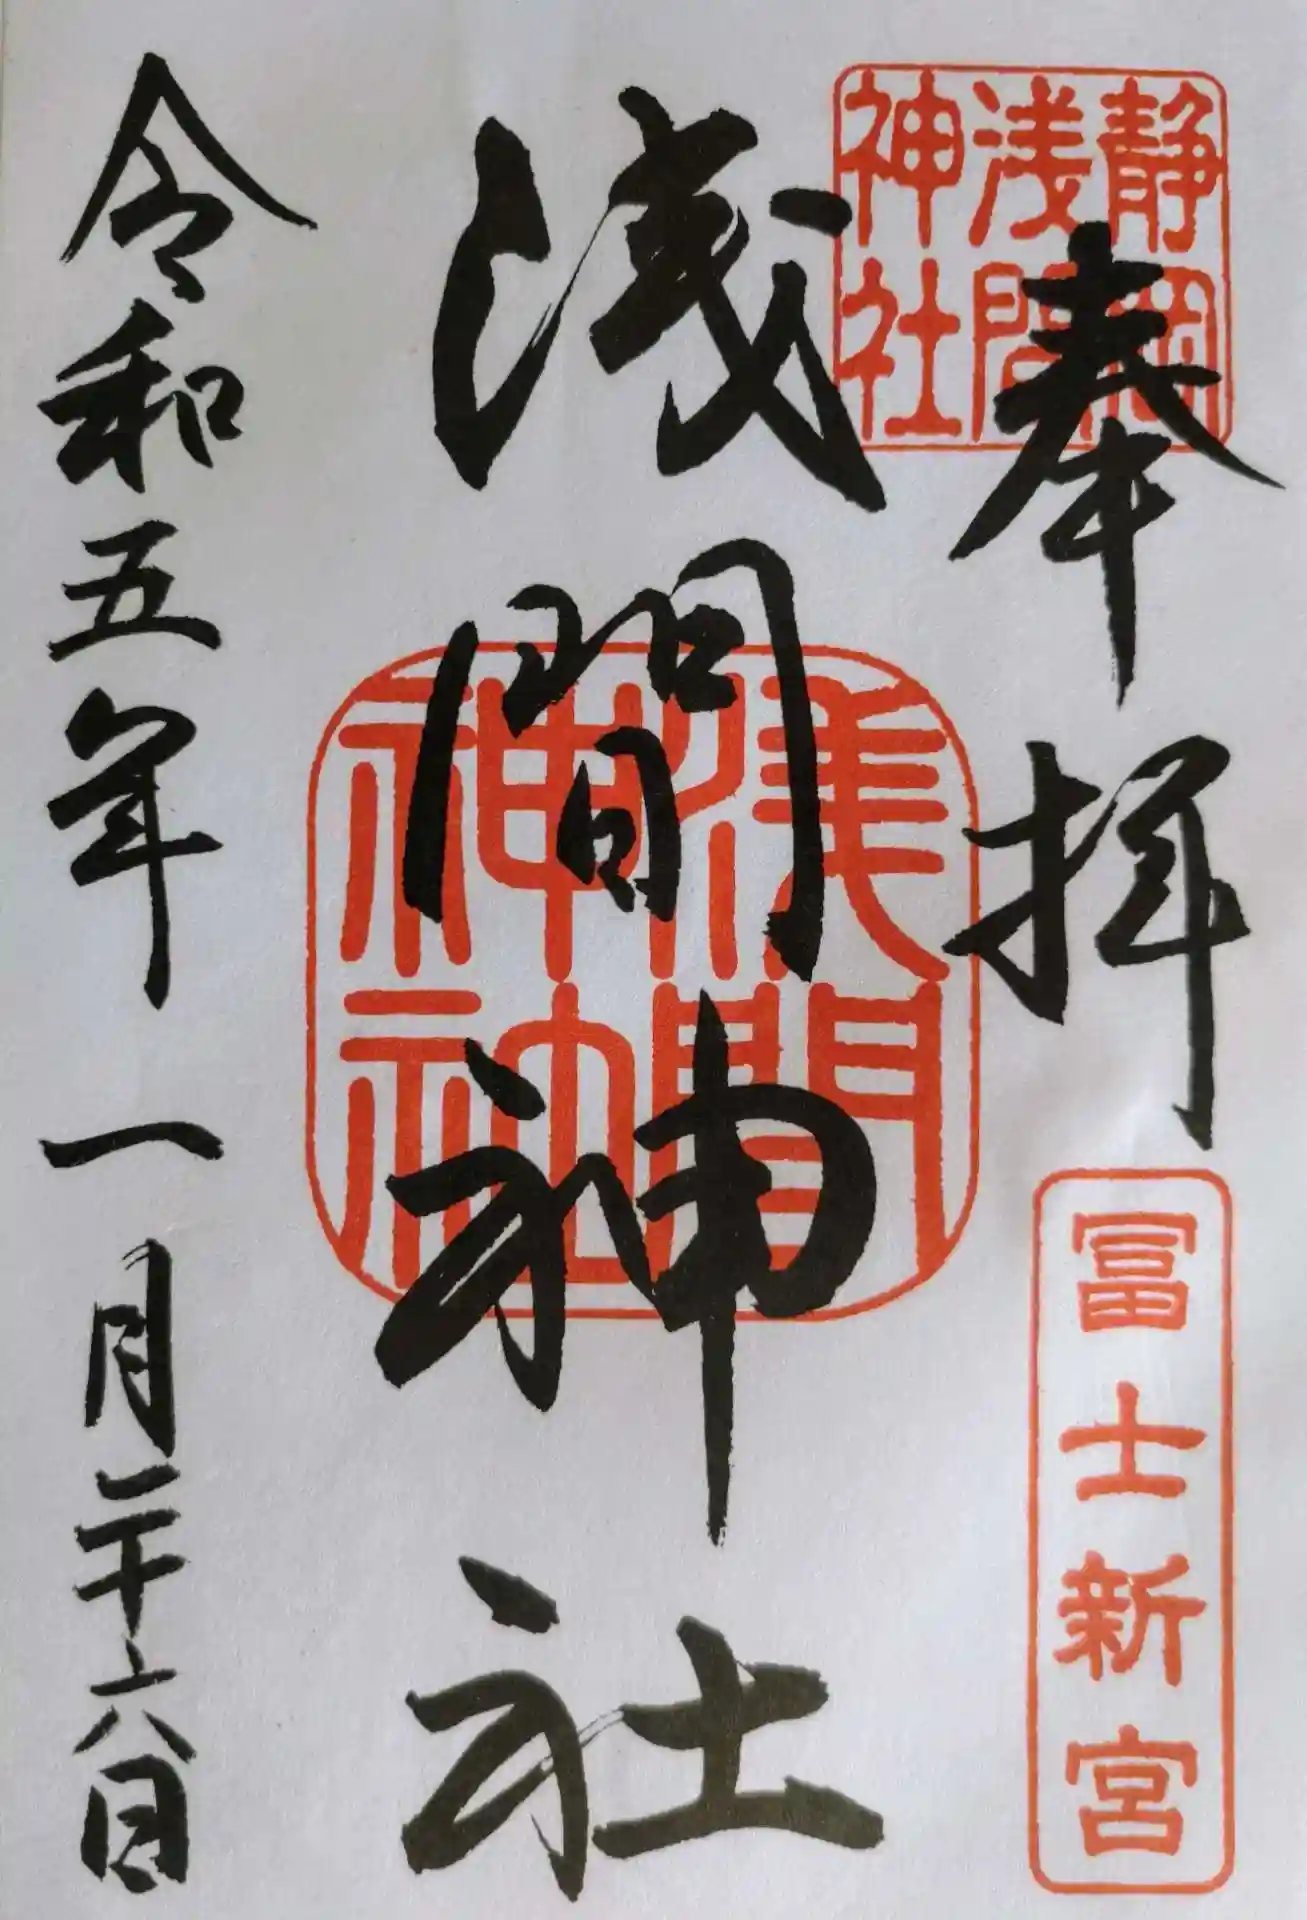 奉拝
静岡
浅間
神社
冨士新宮
浅間神社
浅間
神社
令和五年一月二十六日